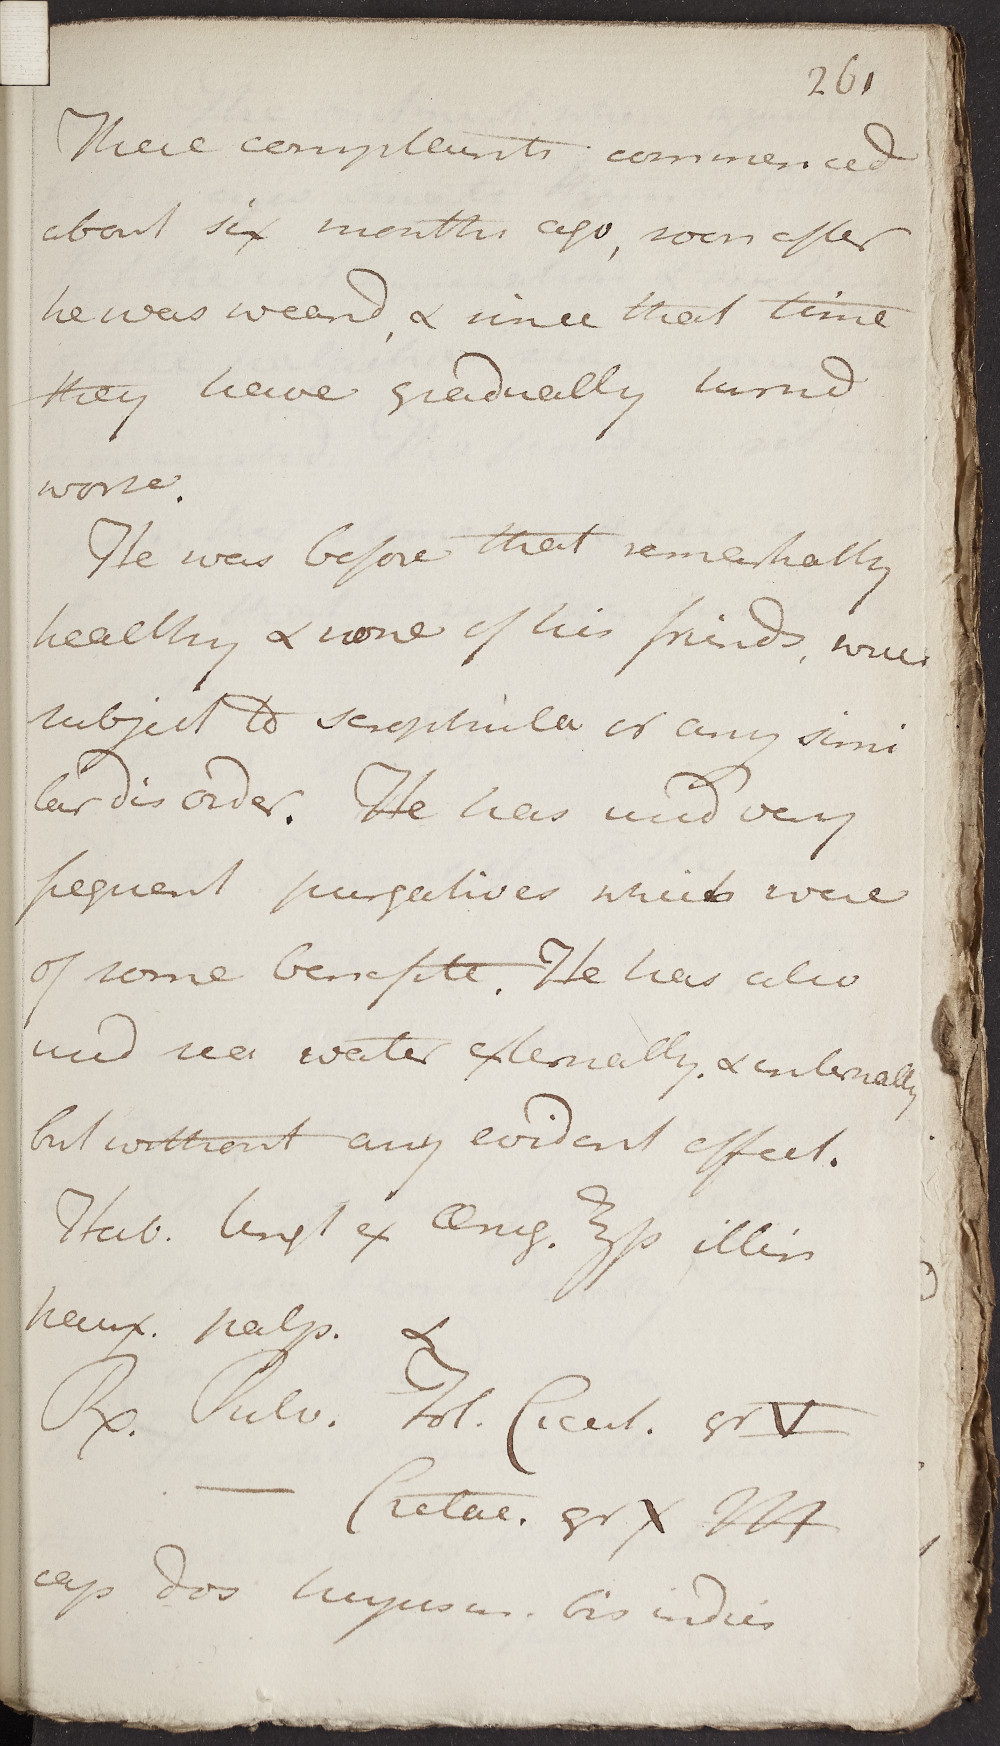 261
These complaints commenced
about six months ago, soon after
he was weand, & since that time
they have gradually turnd
worse.
He was before that remarkally
healthy & none of his friends, were
subject to scrophula or any simi
lar disorder. He has used very
frequent purgatives which were
of some benefite. He has also
used sea water externally. & internally
but without any evident effect.
Hab. Ungt ex Œrug. ℥ß illin
paux. palp. &
Rx. Pulv. Fol. Cicut. gr V
— Cretae. gr X M
cap dos hujusm. bis indies